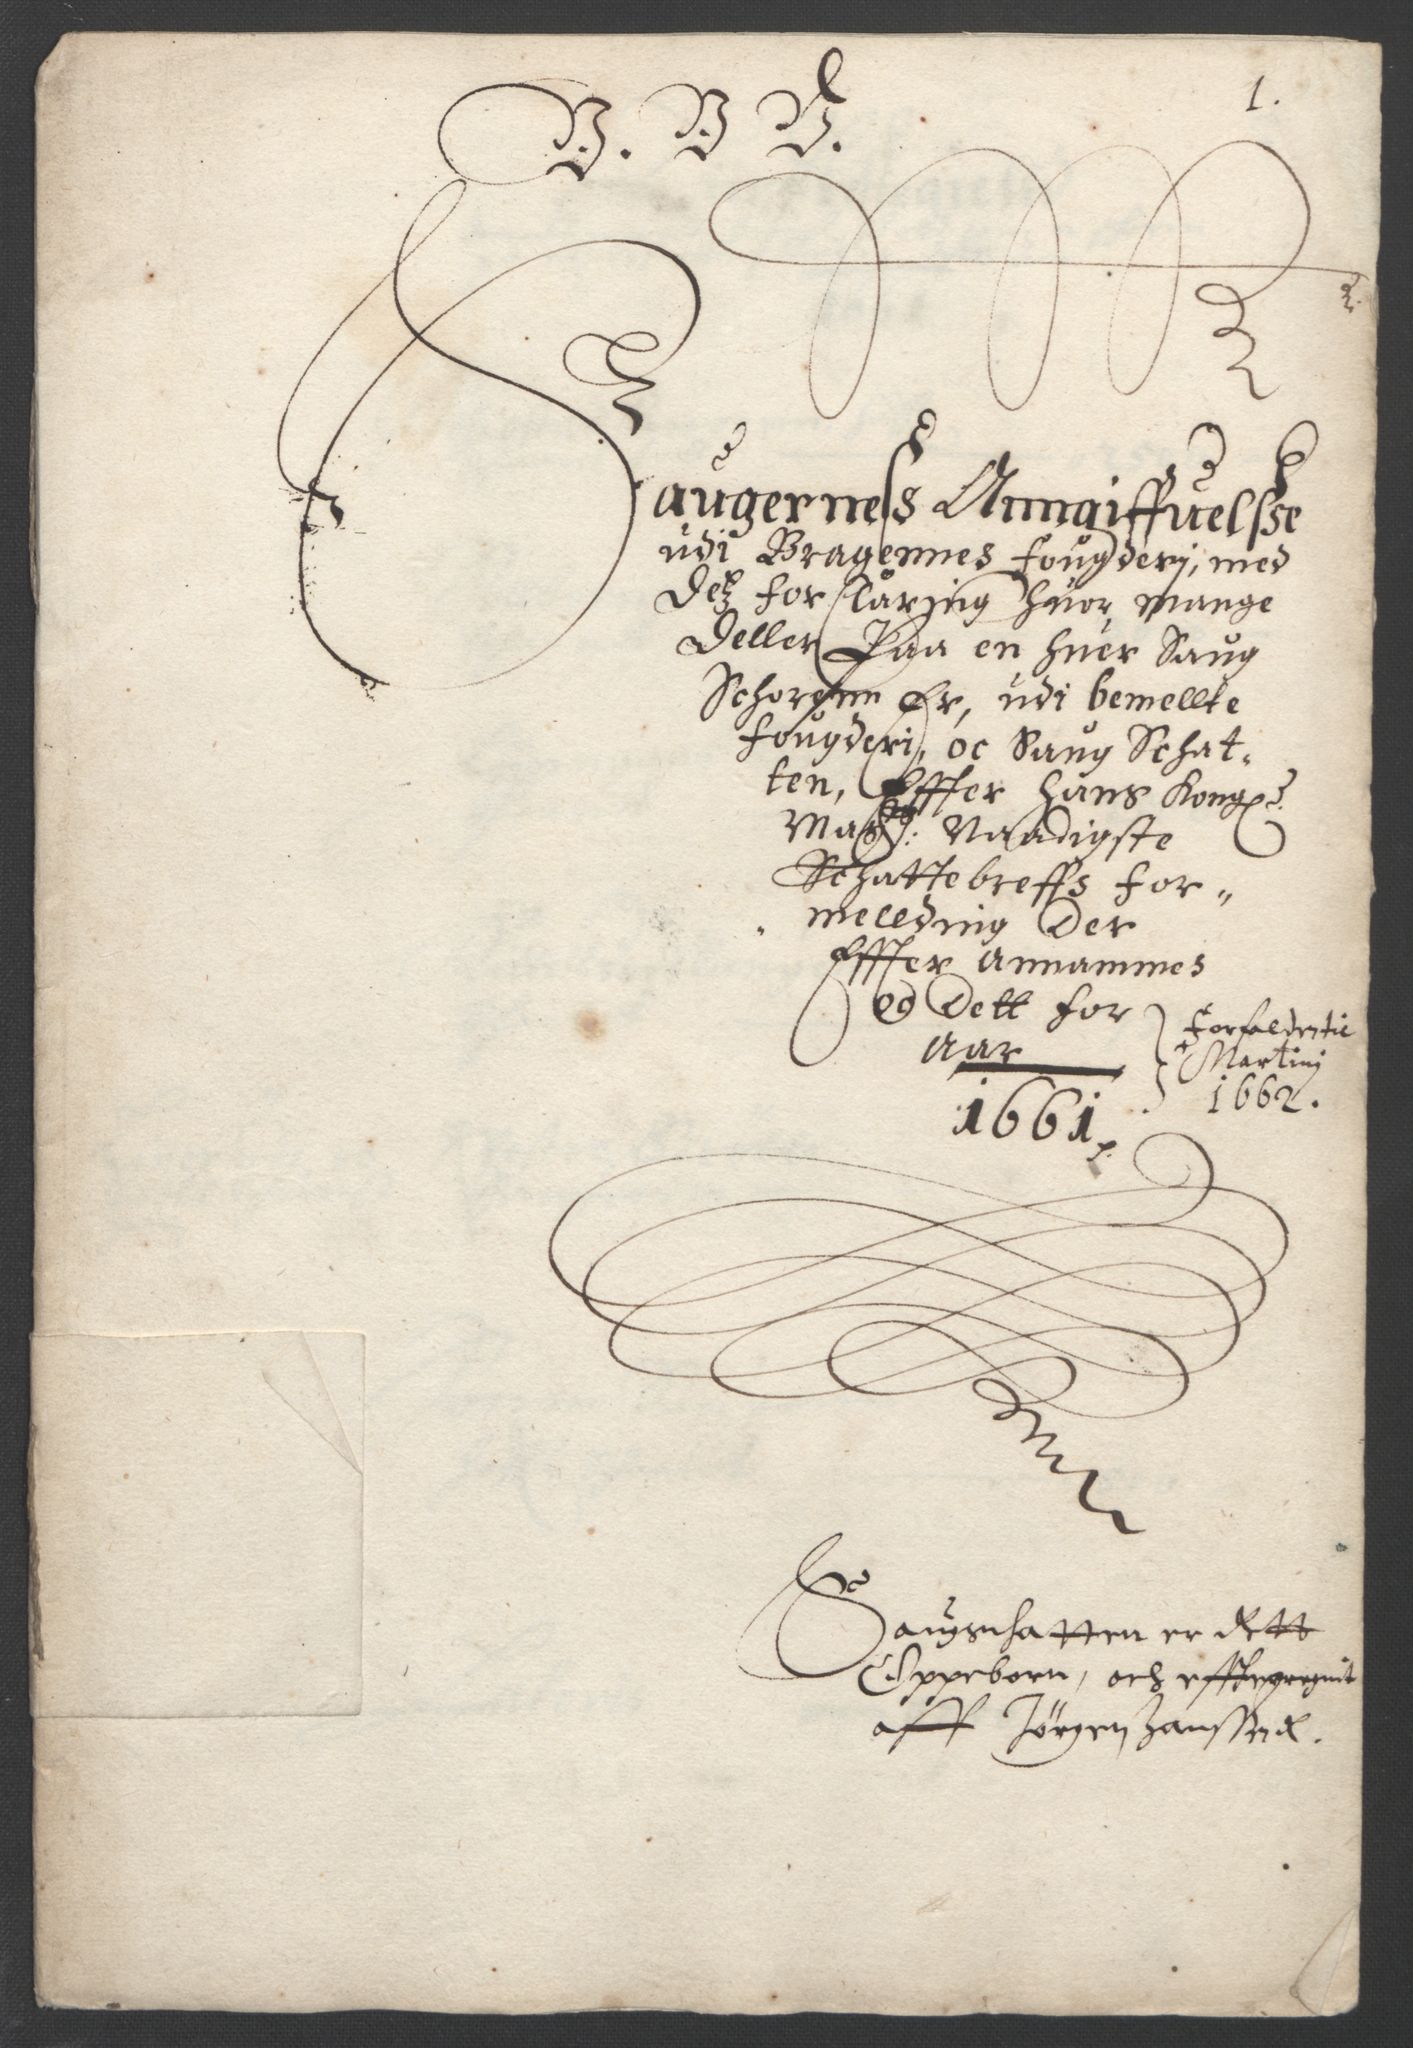 1.
B. B B.
Saugerness Anngiffuelsse
udi Bragennes fougderj, med
Detz forklaring huor mange
Deller Paa en huer Saug
Schorenn Er, udi bemellte
fougderi, oc Saug Schat-
ten, Effter Hans Kong:
May: Naadigste
Schattebreffs for-
mellding der
Effter annammes
og Dett for
Aar
1661
Forfalden til
Martinj
1662.
Saugschatten er dett
Oppeborn, och
aff Jørgen Hanssen.